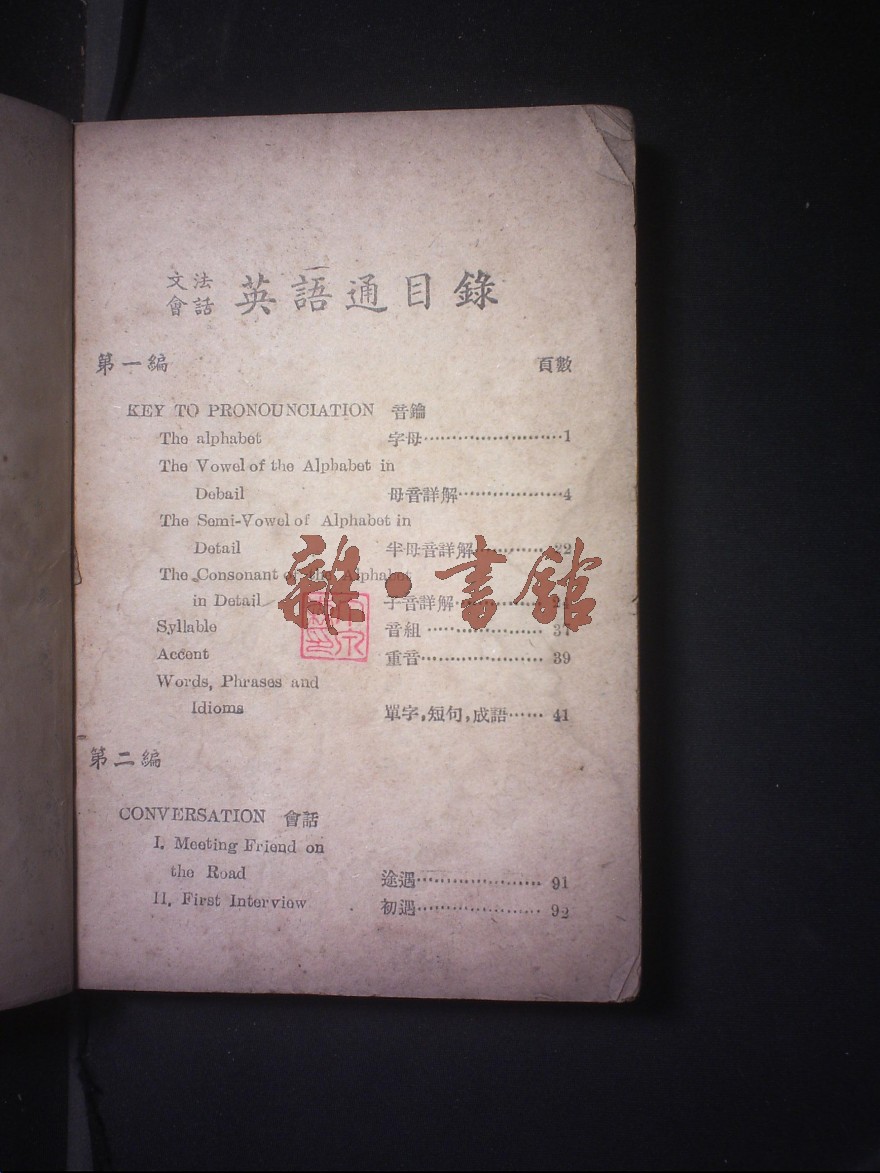 文法
會話 英語通目錄
第一編 頁數
KEY TO PRONOUNCIATION 音鑰
The alphabet 字母……………………1
The Vowel of the Alphabet in
Debail 母音詳解………………4
The Semi-Vowel of Alphabet in
Detail 半母音詳解………… 22
The Consonant of the Alphabet
in Detail 子音詳解…………
雜·書館
Syllable 音組 ………………… 37
Accent 重音………………… 39
Words, Phrases and
Idioms 單字,短句,成語…… 41
第二編
CONVERSATION 會話
I. Meeting Friend on
the Road 途遇………………… 91
II. First Interview 初遇………………… 92